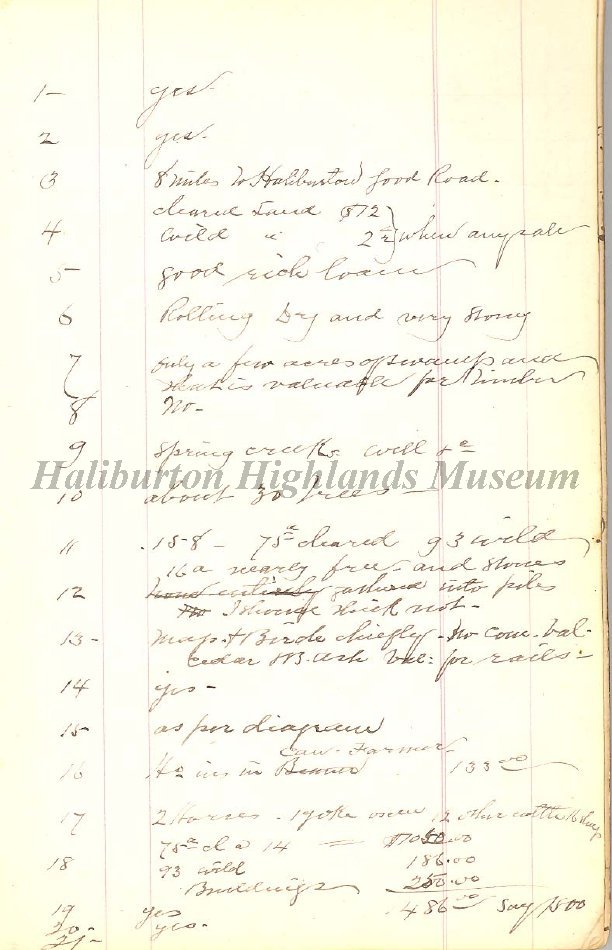 1- yes.
2 yes.
3 8 miles to Haliburton good Road.
cleared Land $12
4 Wild " 2 when any sale
5 good rich loam
6 Rolling Dry and very stony
7 only a few acres of swamp and
that is valuable for timber
8 No-
9 Spring creek well &c
Haliburton Highlands Museum
10 about 30 trees-
11 158 - 75 a cleared 93 wild
16 a nearly free and stones
12 gathered into piles
I should think not-
13- Maple & Birch chiefly - No com. Val-
cedar & B. Ash Val: for rails-
14 yes-
15 as per diagram
Can. Farmer
16 Ho ins in 133 00
17 2 Horses - 1 yoke oxen, 2 other cattle 16 sheep
75 a cl a 14 = $1050.00
18 93 wild 186.00
Buildings 250.00
19 yes 486 00 Say 1500
20- yes-
21-